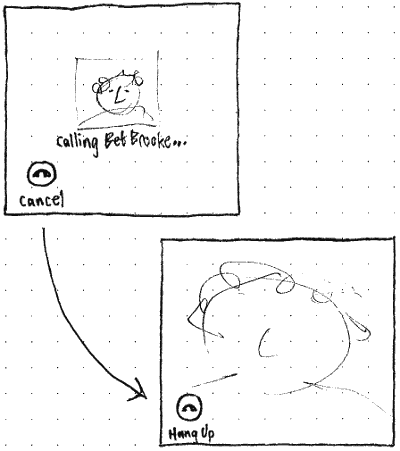 Calling Bet Brooke...
Cancel
Hang Up